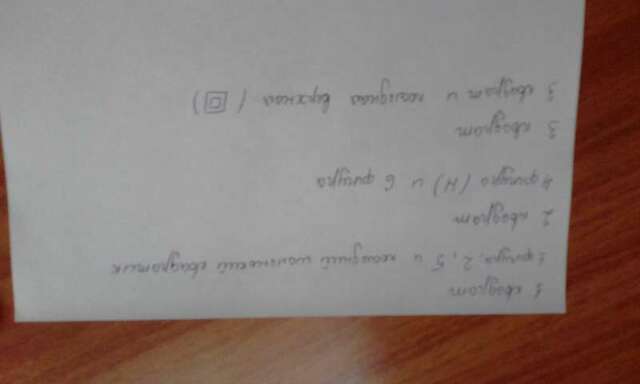 1 квадрат
1 фигура, 2, 5 и последний маленький квадратик
2 квадрат
4 фигура (н) и 6 фигура
3 квадрат
3 квадрат и последняя верхняя ( )